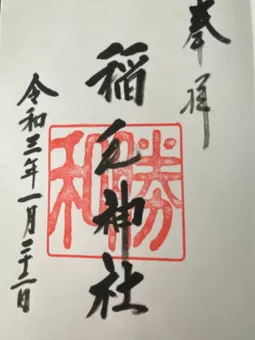 奉拝
稲毛神社
勝和
令和三年一月二十二日